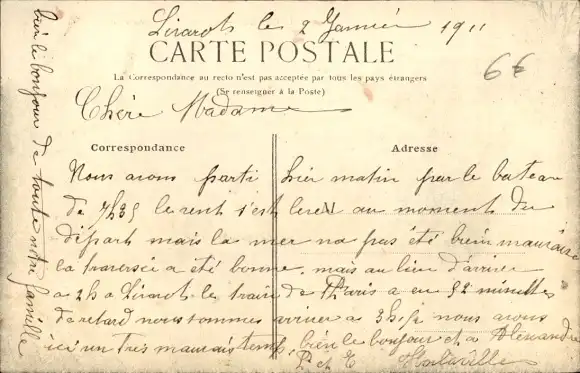 Livarot le 2 Janvier 1911
CARTE POSTALE
La Correspondance au recto n'est pas acceptée par tous les pays étrangers
(Se renseigner à la Poste)
6€
Chère Madame
Correspondance
Adresse
Nous avons parti hier matin par le bateau
de 7h35 le vent s'est levé au moment du
départ mais la mer na pas été bien mauvaise
la traversée a été bonne, mais au lieu d'arriver
a 2h a Livarot le train de Paris a eu 52 minutes
de retard nous sommes arriver a 3h½ nous avons
ici un très mauvais temps, bien le bonjour et a Alexandre
P. et E.
bien le bonjour de toute notre famille